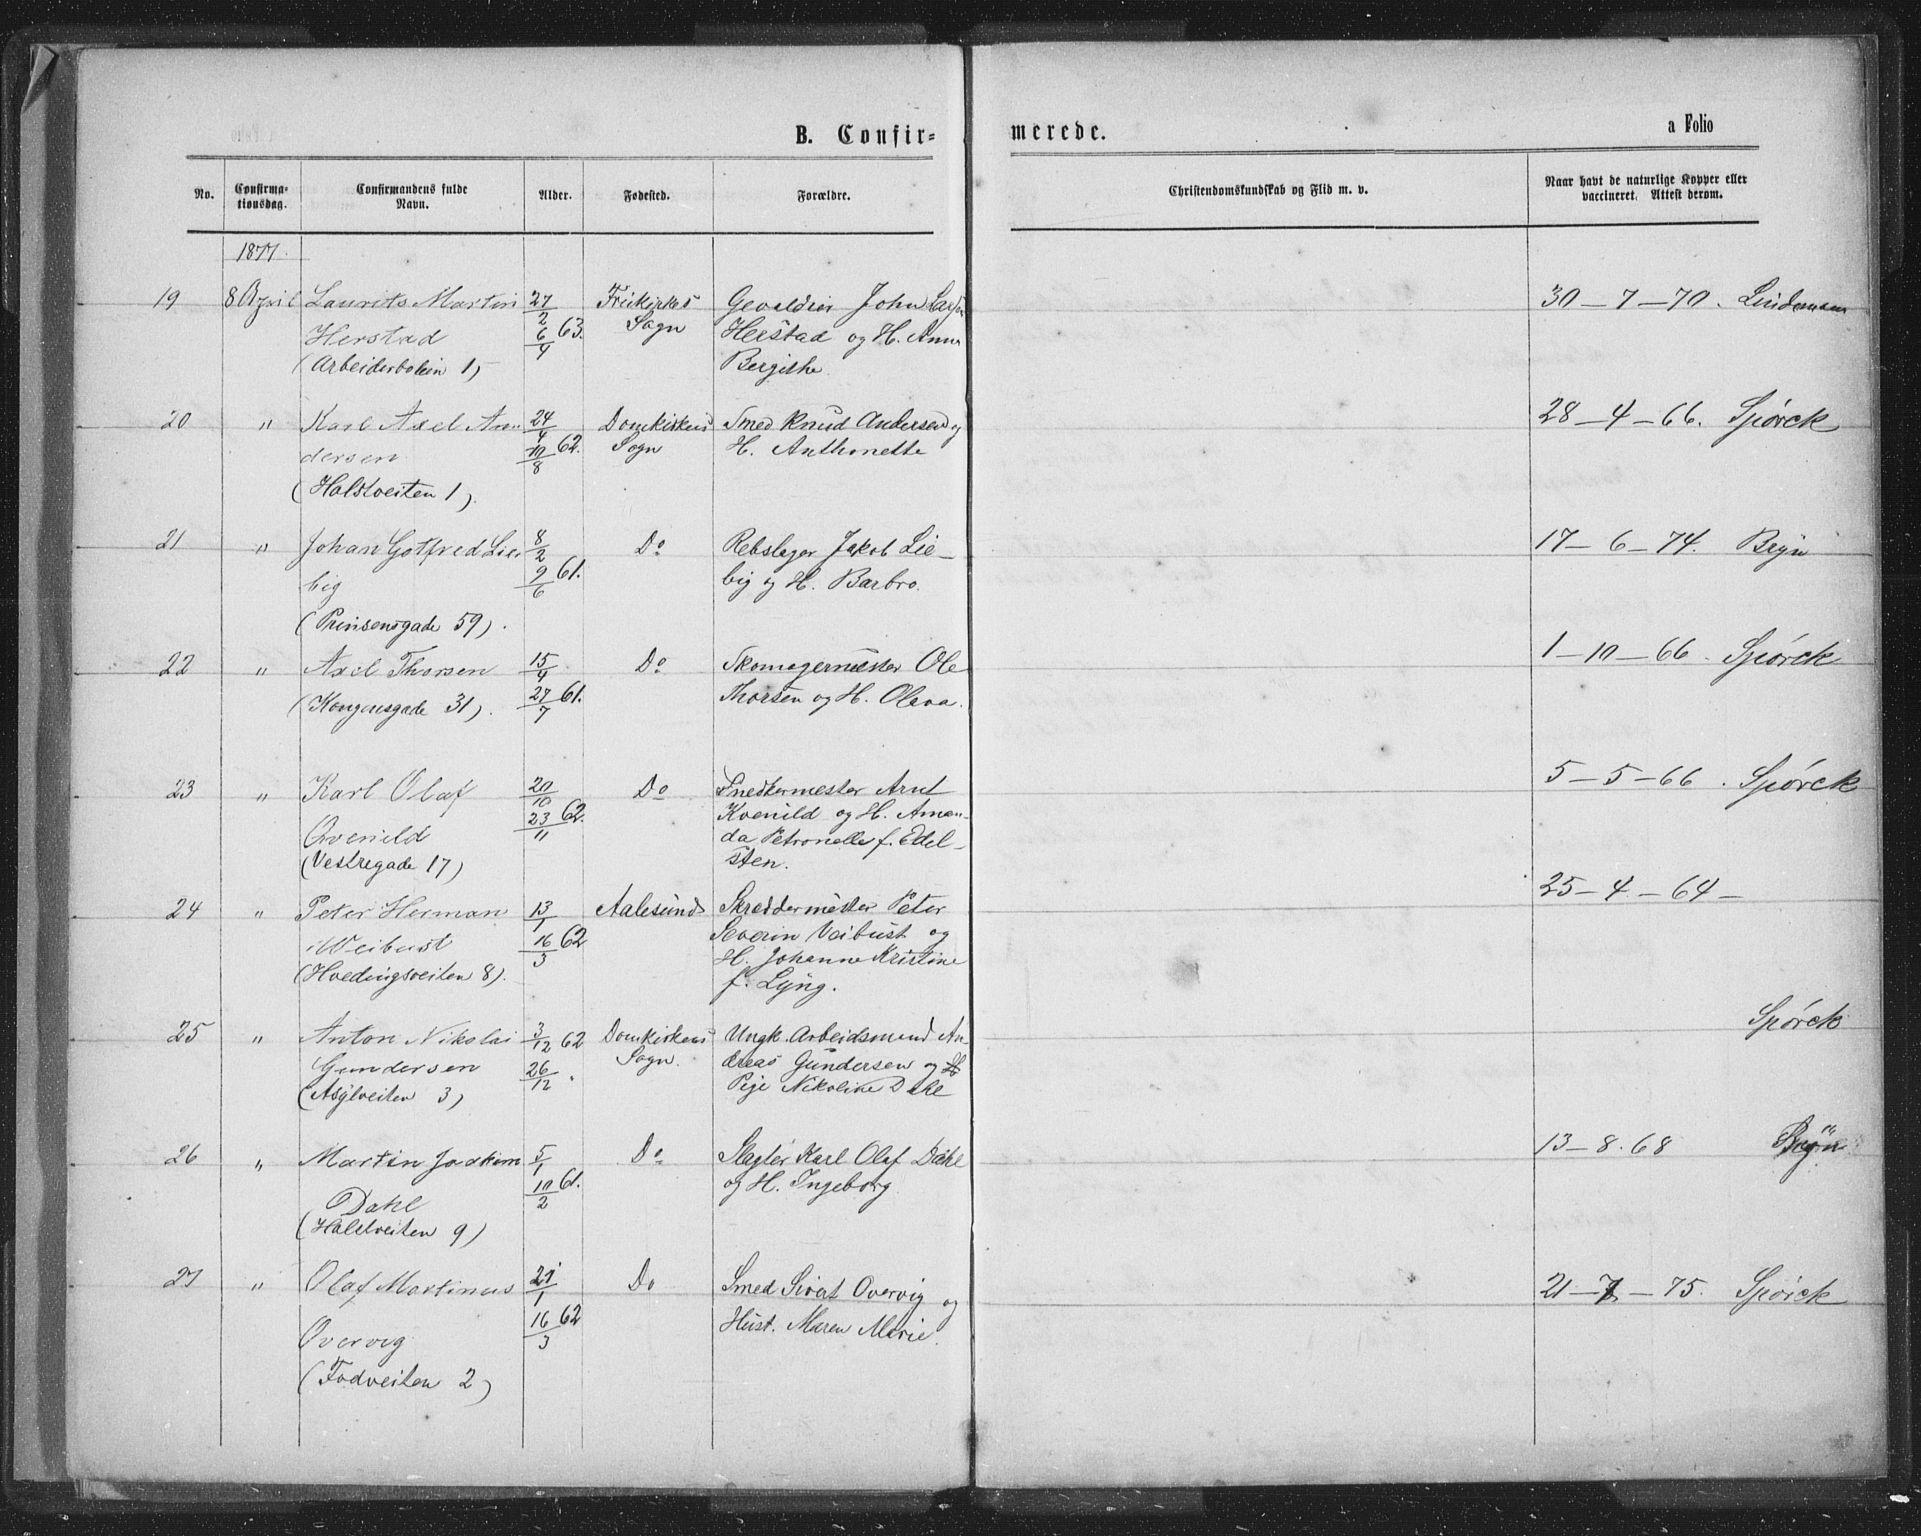 B. Confir-
merede.
a Folio
No.
Confirma-
tionsdag.
Confirmandens fulde
Navn.
Alder.
Fødested.
Forældre.
Christendomskundskab og Flid m. v.
Naar havt de naturlige Kopper eller
vaccineret. Attest derom.
1877.
19 8 April Laurits Martin 27/2 Gevaldier John
Herstad 6/4 63. Sogn Herstad og H. Anna
(Arbeiderbolein 1) Bergithe
30-7-70. Lindeman
20 " Karl Axel An- 24/4 Domkirkens Smed Knud Andersen og
dersen 10/8 62. Sogn H. Anthonette
(Halstveiten 1).
28-4-66. Spörck
21 " Johan Gotfred Lie- 8/2 Do Rebslager Jakob Lie-
big 9/6 61. big og H. Barbro.
(Prinsensgade 59).
17-6-74. Bryn
22 " Axel Thorsen 15/4 Do Skomagermester Ole
(Kongensgade 31). 27/7 61. Thorsen og H. Oleva.
1-10-66. Spörck
23 " Karl Olaf 20/10 Do Snedkermester Arnt
Qvenild 23/11 62. Kvenild og H. Aman-
(Vestregade 17) da Petronelle f. Edel-
sten.
5-5-66. Spörck
24 " Peter Herman 13/1 Aalesund Skreddermester Peter
Weibust 16/3 62 Severin Veibust og
(Hvedingsveiten 8). H. Johanne Kristine
f. Lyng.
25-4-64-
25 " Anton Nikolai 3/12 62 Domkirkens Ungk. Arbeidsmand An-
Gundersen 26/12 " Sogn. dreas Gundersen og
(Asylveiten 3) Pige Nikoline Dahl
Spörck
26 " Martin Joakim 5/1 Do Slagter Karl Olaf Dahl
Dahl 10/2 61. og H. Ingeborg
(Halstveiten 9)
13-8.68 Bryn
27 " Olaf Martinus 21/1 Do Smed Sivert Overvig og
Overvig 16/3 62 Hust. Maren Marie.
(Fodveiten 2)
21-7-75. Spörck